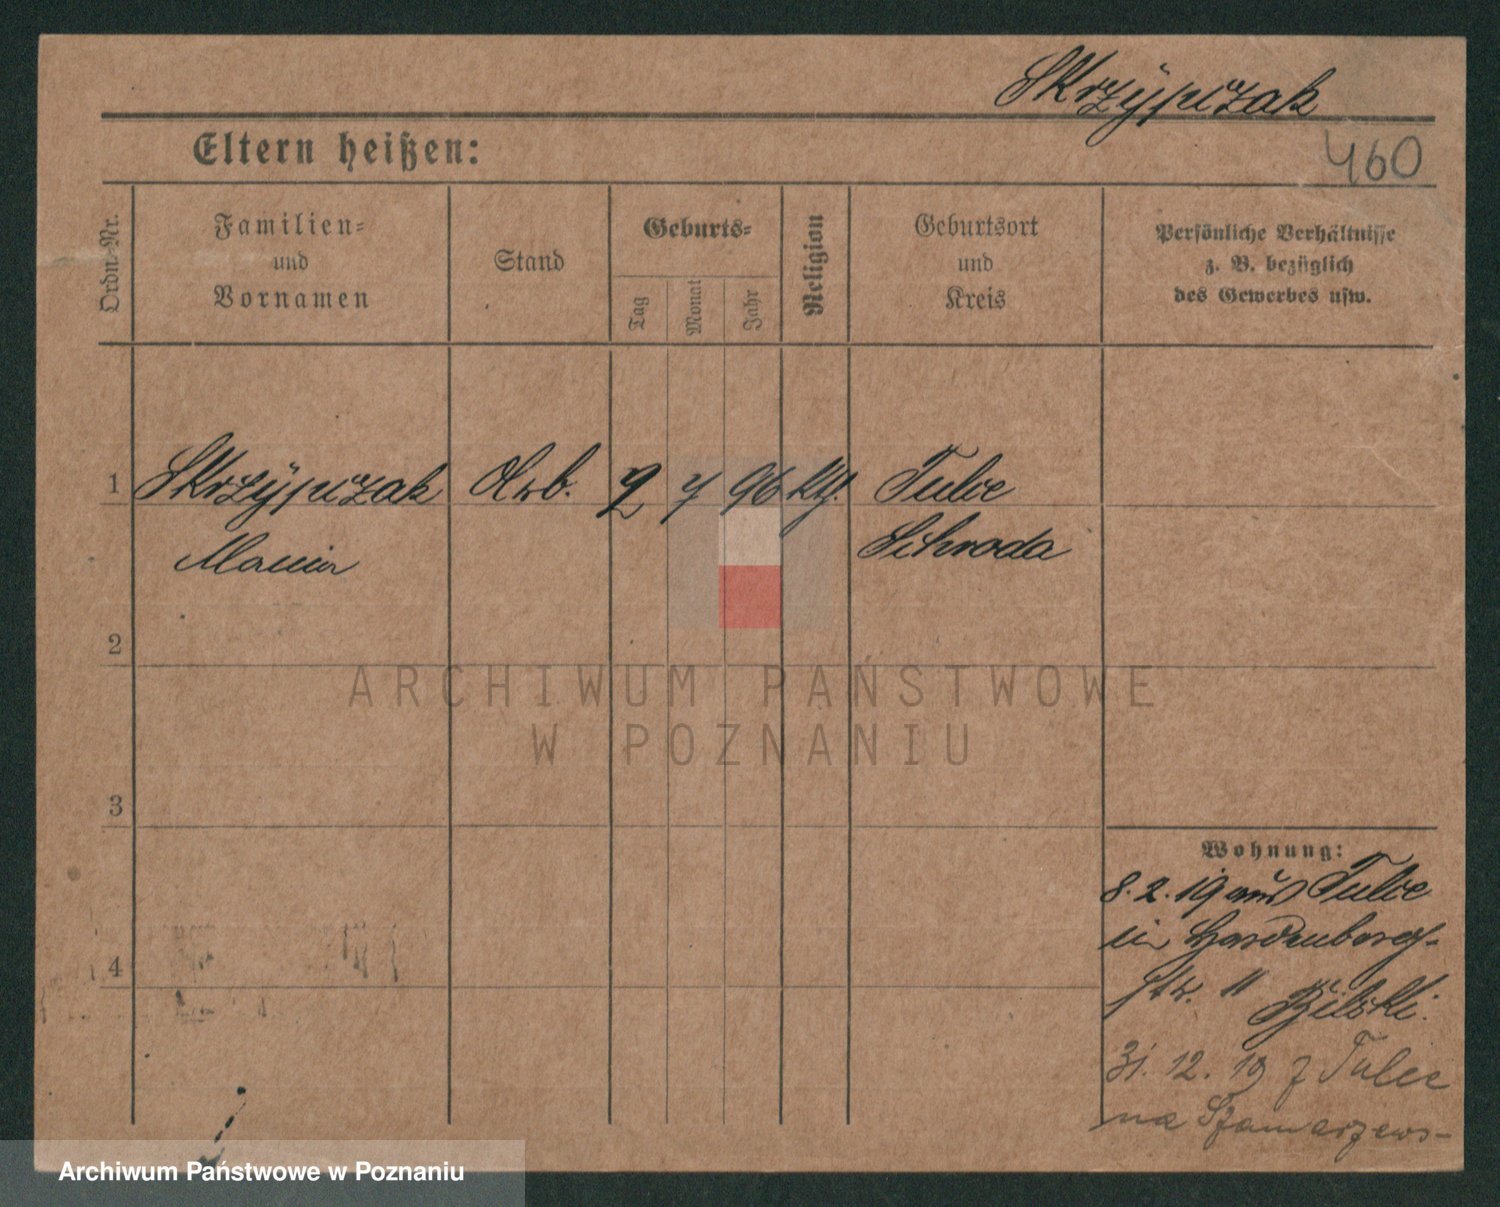 Skrzypczak
Eltern heißen:
460
Ordn.-Nr.
Familien-
und
Vornamen
Stand
Geburts-
Tag
Monat
Jahr
Religion
Geburtsort
und
Kreis
Persönliche Verhältnisse
z. B. bezüglich
des Gewerbes usw.
1 Skrzypczak Arb. 9 7 96 kth. Tulce
Schroda
2
3
4
Wohnung:
8.2.19 aus Tulce
in Hardenberg-
str. 11 Bilski.
31.12.19 z Tulec
na Szamarzews-
ARCHIWUM PAŃSTWOWE
W POZNANIU
Archiwum Państwowe w Poznaniu